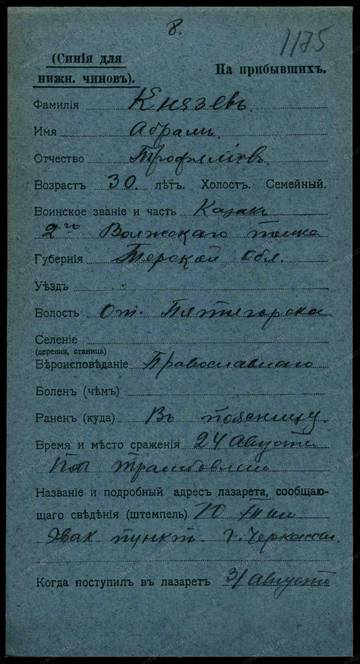 8.
1175
(Синія для
нижн. чиновъ).
На прибывшихъ.
Фамилія Князевъ.
Имя Абрамъ
Отчество
Возрастъ 30. лѣтъ. Холостъ. Семейный.
Воинское званіе и часть Казакъ
2го Волжскаго полка
Губернія Терской Обл.
Уѣздъ
Волость От. Пятигорска
Селеніе
(деревня, станица)
Вѣроисповѣданіе Православнаго
Боленъ (чѣмъ)
Раненъ (куда) Въ поясницу
Время и мѣсто сраженія 24 Августа
Под
Названіе и подробный адресъ лазарета, сообщаю-
щаго свѣдѣнія (штемпель) 10
Эвак пунктъ г. Черкассы
Когда поступилъ въ лазаретъ 31 Августа